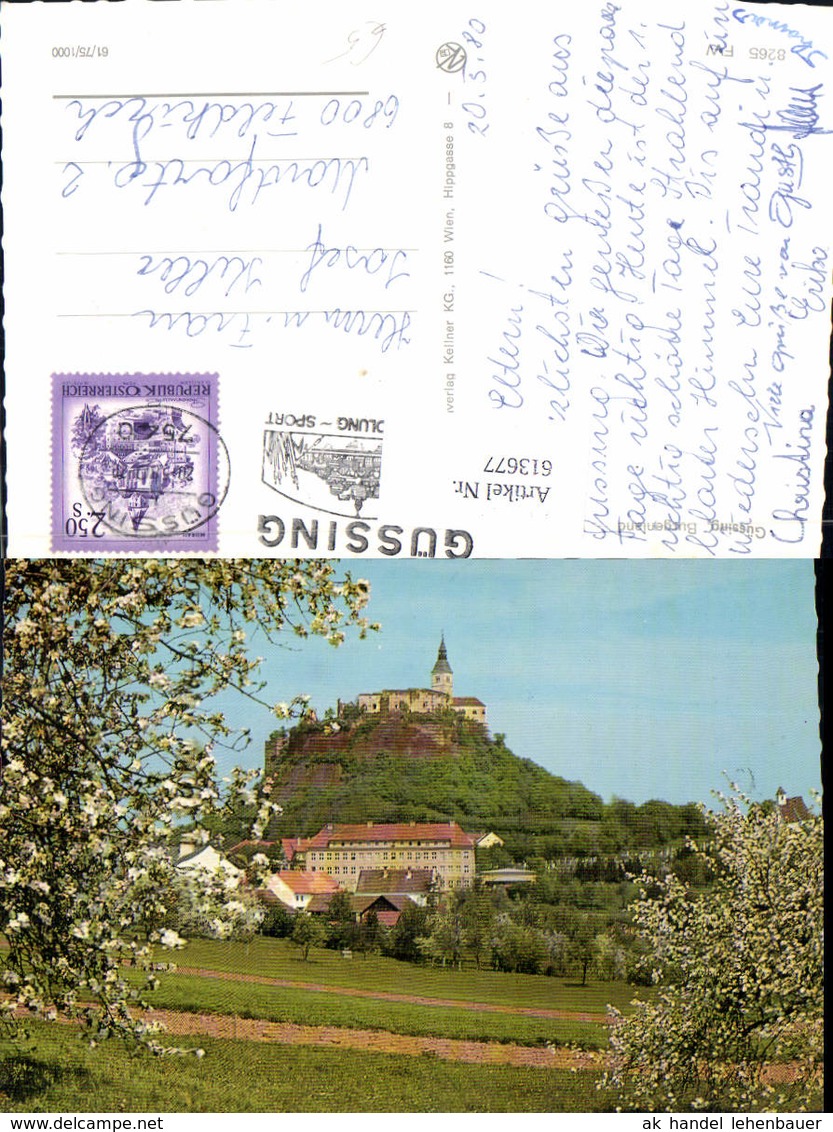 8265 FW
61/75/1000
20.5.80
Eltern!
'zlichsten Grüße aus
Güssing. Wir genießen diepaar
Tage richtig. Heute ist der 1.
richtig schöne Tag. Strahlend
blauer Himmel. Bis auf ein
Wiedersehn Eure Traudi u.
Viele Grüße von Gustl
Christina Erika
Güssing, Burgenland
verlag Kellner KG., 1160 Wien, Hippgasse 8 —
GÜSSING
OLUNG ~ SPORT
2.50
S
REPUBLIK ÖSTERREICH
7540
GÜSSING
Herrn u. Frau
Josef Keller
6800 Feldkirch
Artikel Nr.
613677
ak handel lehenbauer